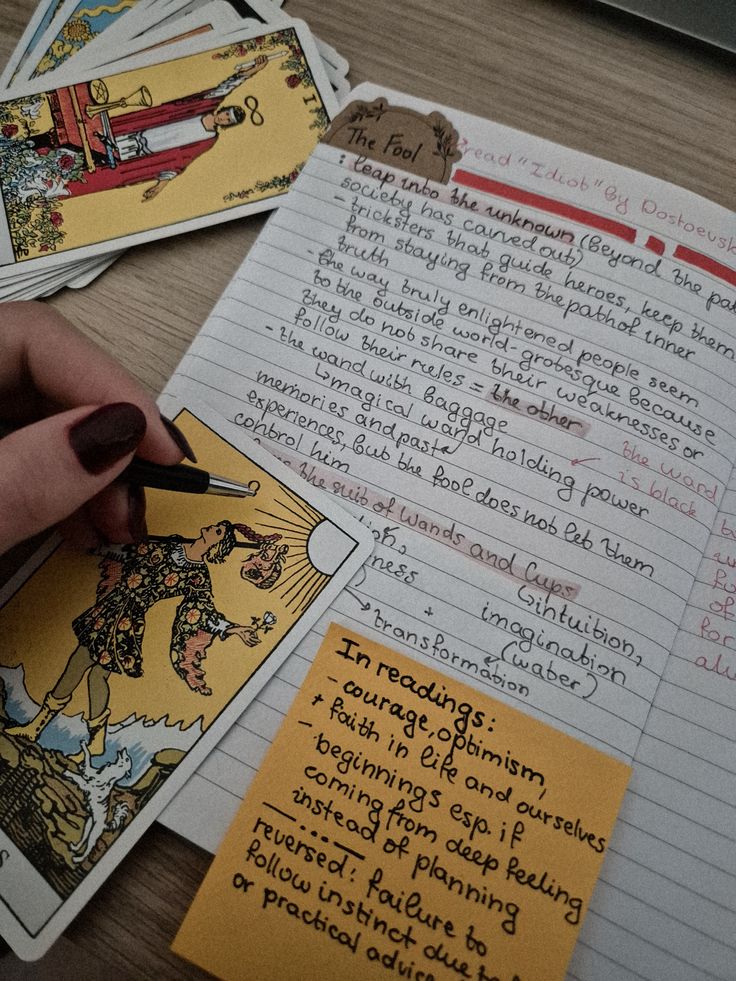 I
The Fool
read "Idiot" By Dostoevsk
: leap into the unknown (Beyond the pat
society has carved out)
- tricksters that guide heroes, keep them
from staying from the path of inner
truth
- the way truly enlightened people seem
to the outside world - grotesque because
they do not share their weaknesses or
follow their rules = the other
- the wand with baggage
↳ magical wand holding power
memories and past
experiences, but the fool does not let them
control him
the wand
is black
the suit of Wands and Cups
↳ intuition,
ness
+ imagination
(water)
→ transformation
0
In readings:
- courage, optimism,
+ faith in life and ourselves
- beginnings esp. if
coming from deep feeling
instead of planning
reversed: failure to
follow instinct due to
or practical advice